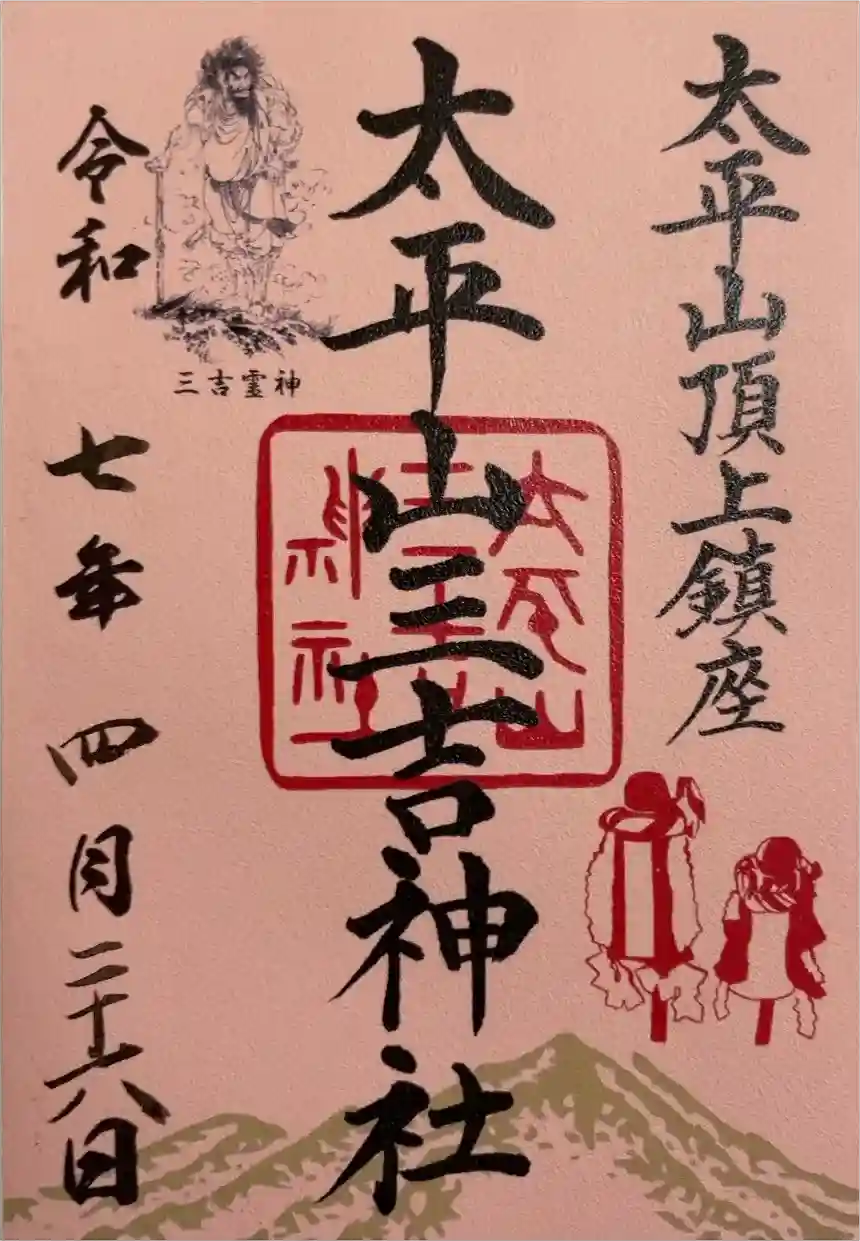 太平山頂上鎮座
太平山三吉神社
太平山
三吉
神社
三吉霊神
令和七年四月二十六日